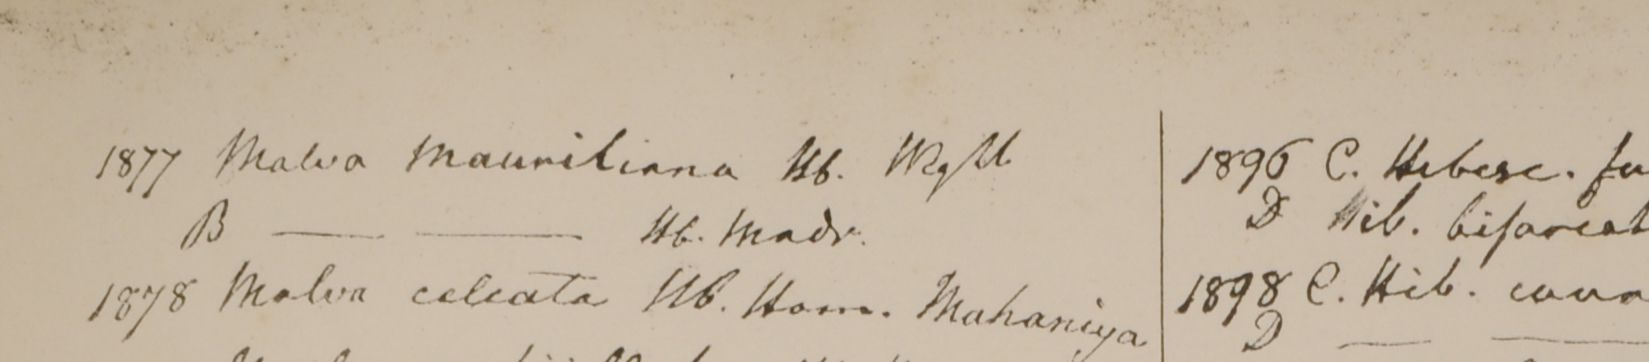 1877 Malva Mauritiana Hb. Wight
B — — Hb. Madr.
1878 Malva celcata Hb. Ham. Mahaniya
1896 C. Hibesc. fu
D Hib. bifurcat
1898 C. Hib. cann
D — —